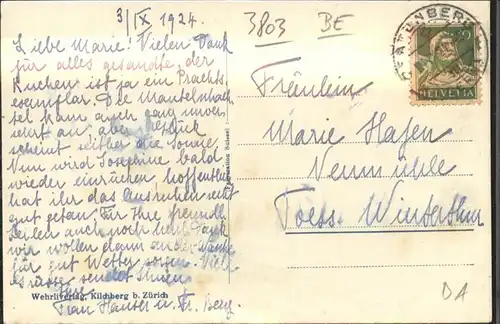 3/IX 1924.
3803 BE
Liebe Marie! Vielen Dank
für alles gesandte, der
Kuchen ist ja ein Prachts-
exemplar. Die
kann auch
an, aber
scheint seither die Sonne.
Nun wird Josephine bald
wieder einrücken hoffentlich
hat ihr das Ausruhen recht
gut getan. Für Ihre freundl.
Zeilen auch noch Dank
wir wollen dann an der
für gut Wetter sorgen. Viele
Grüsse sendet Ihnen
Ihre
Frau Hauser u. Fr. Berg.
Wehrliverlag, Kilchberg b. Zürich
HELVETIA
Fräulein
Marie Hafen
Neumühle
Toess-Winterthur
DA